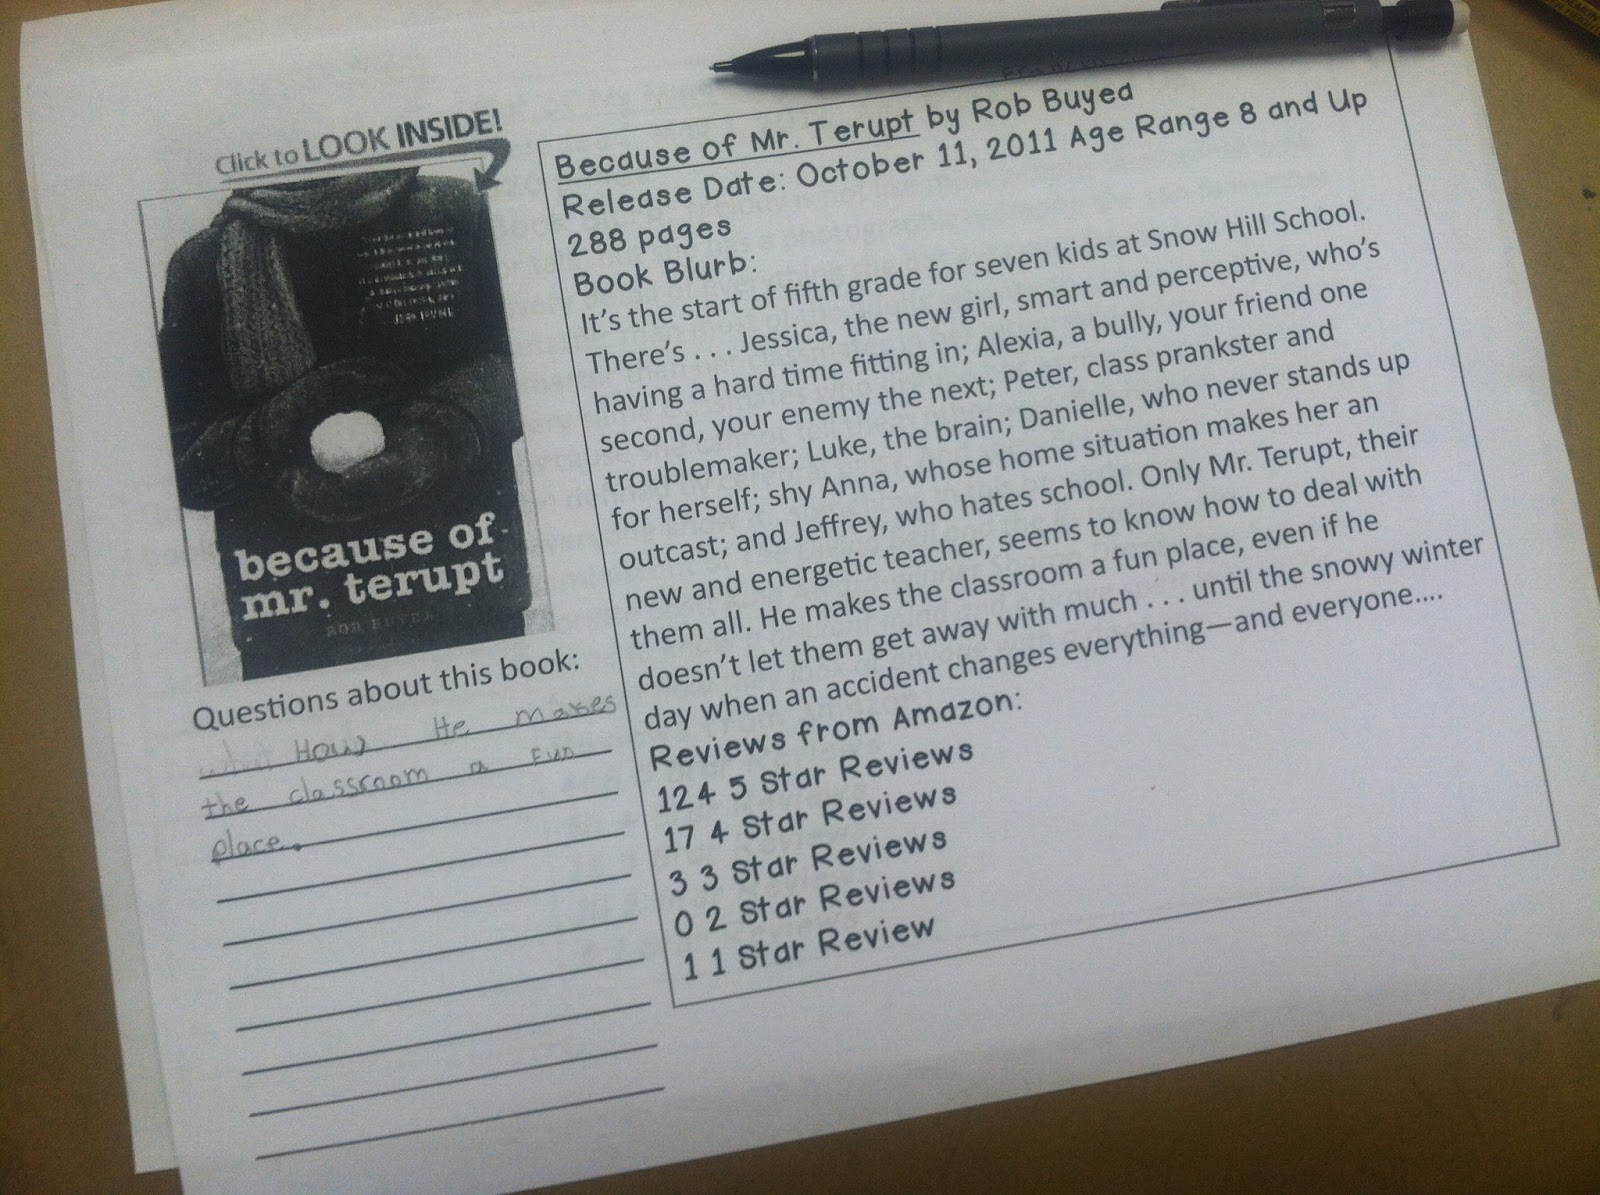 Click to LOOK INSIDE!
because of
mr. terupt
ROB BUYEA
Questions about this book:
How He makes
the classroom a fun
place.
Because of Mr. Terupt by Rob Buyed
Release Date: October 11, 2011 Age Range 8 and Up
288 pages
Book Blurb:
It's the start of fifth grade for seven kids at Snow Hill School.
There's . . . Jessica, the new girl, smart and perceptive, who's
having a hard time fitting in; Alexia, a bully, your friend one
second, your enemy the next; Peter, class prankster and
troublemaker; Luke, the brain; Danielle, who never stands up
for herself; shy Anna, whose home situation makes her an
outcast; and Jeffrey, who hates school. Only Mr. Terupt, their
new and energetic teacher, seems to know how to deal with
them all. He makes the classroom a fun place, even if he
doesn't let them get away with much . . . until the snowy winter
day when an accident changes everything—and everyone....
Reviews from Amazon:
124 5 Star Reviews
17 4 Star Reviews
3 3 Star Reviews
0 2 Star Reviews
1 1 Star Review